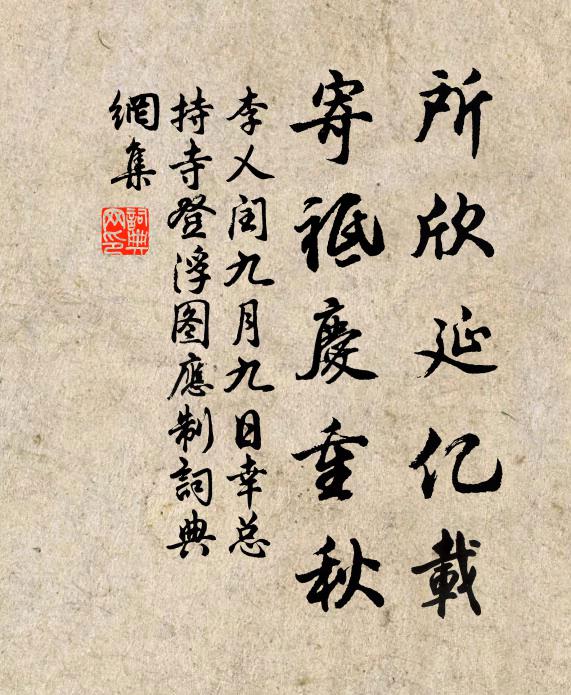 所欣延亿載
寄祗慶重秋
李乂闰九月九日幸总
持寺登浮图應制詞典
網集
詞典
网印